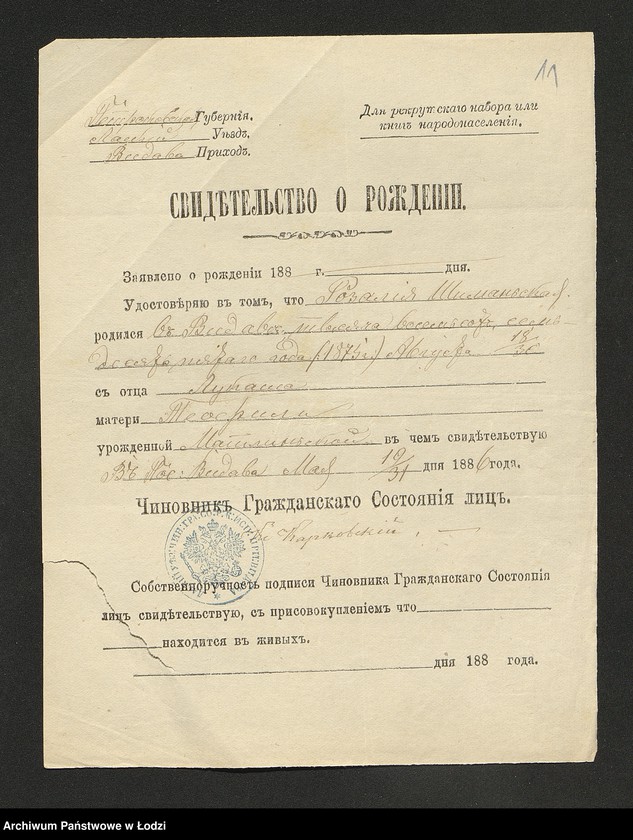 11
Петроковская Губернія.
Ласкій Уѣздъ.
Видава Приходъ.
Для рекрутскаго набора или
книгъ народонаселенія.
СВИДѢТЕЛЬСТВО О РОЖДЕНІИ.
Заявлено о рожденіи 188 г. дня.
Удостовѣряю въ томъ, что Розалія Шиманьская
родился въ Видавѣ, тысяча восемьсотъ семь
десятъ пятаго года (1875 г.) Августа 18/30
съ отца Лукаша
матери Теофили
урожденной въ чемъ свидѣтельствую
Въ Пос. Видава Мая 19/31 дня 1886 года.
Чиновникъ Гражданскаго Состоянія лицъ.
Кс Карковскій.
Собственноручность подписи Чиновника Гражданскаго Состоянія
лицъ свидѣтельствую, съ присовокупленіемъ что
находится въ живыхъ.
дня 188 года.
Archiwum Państwowe w Łodzi